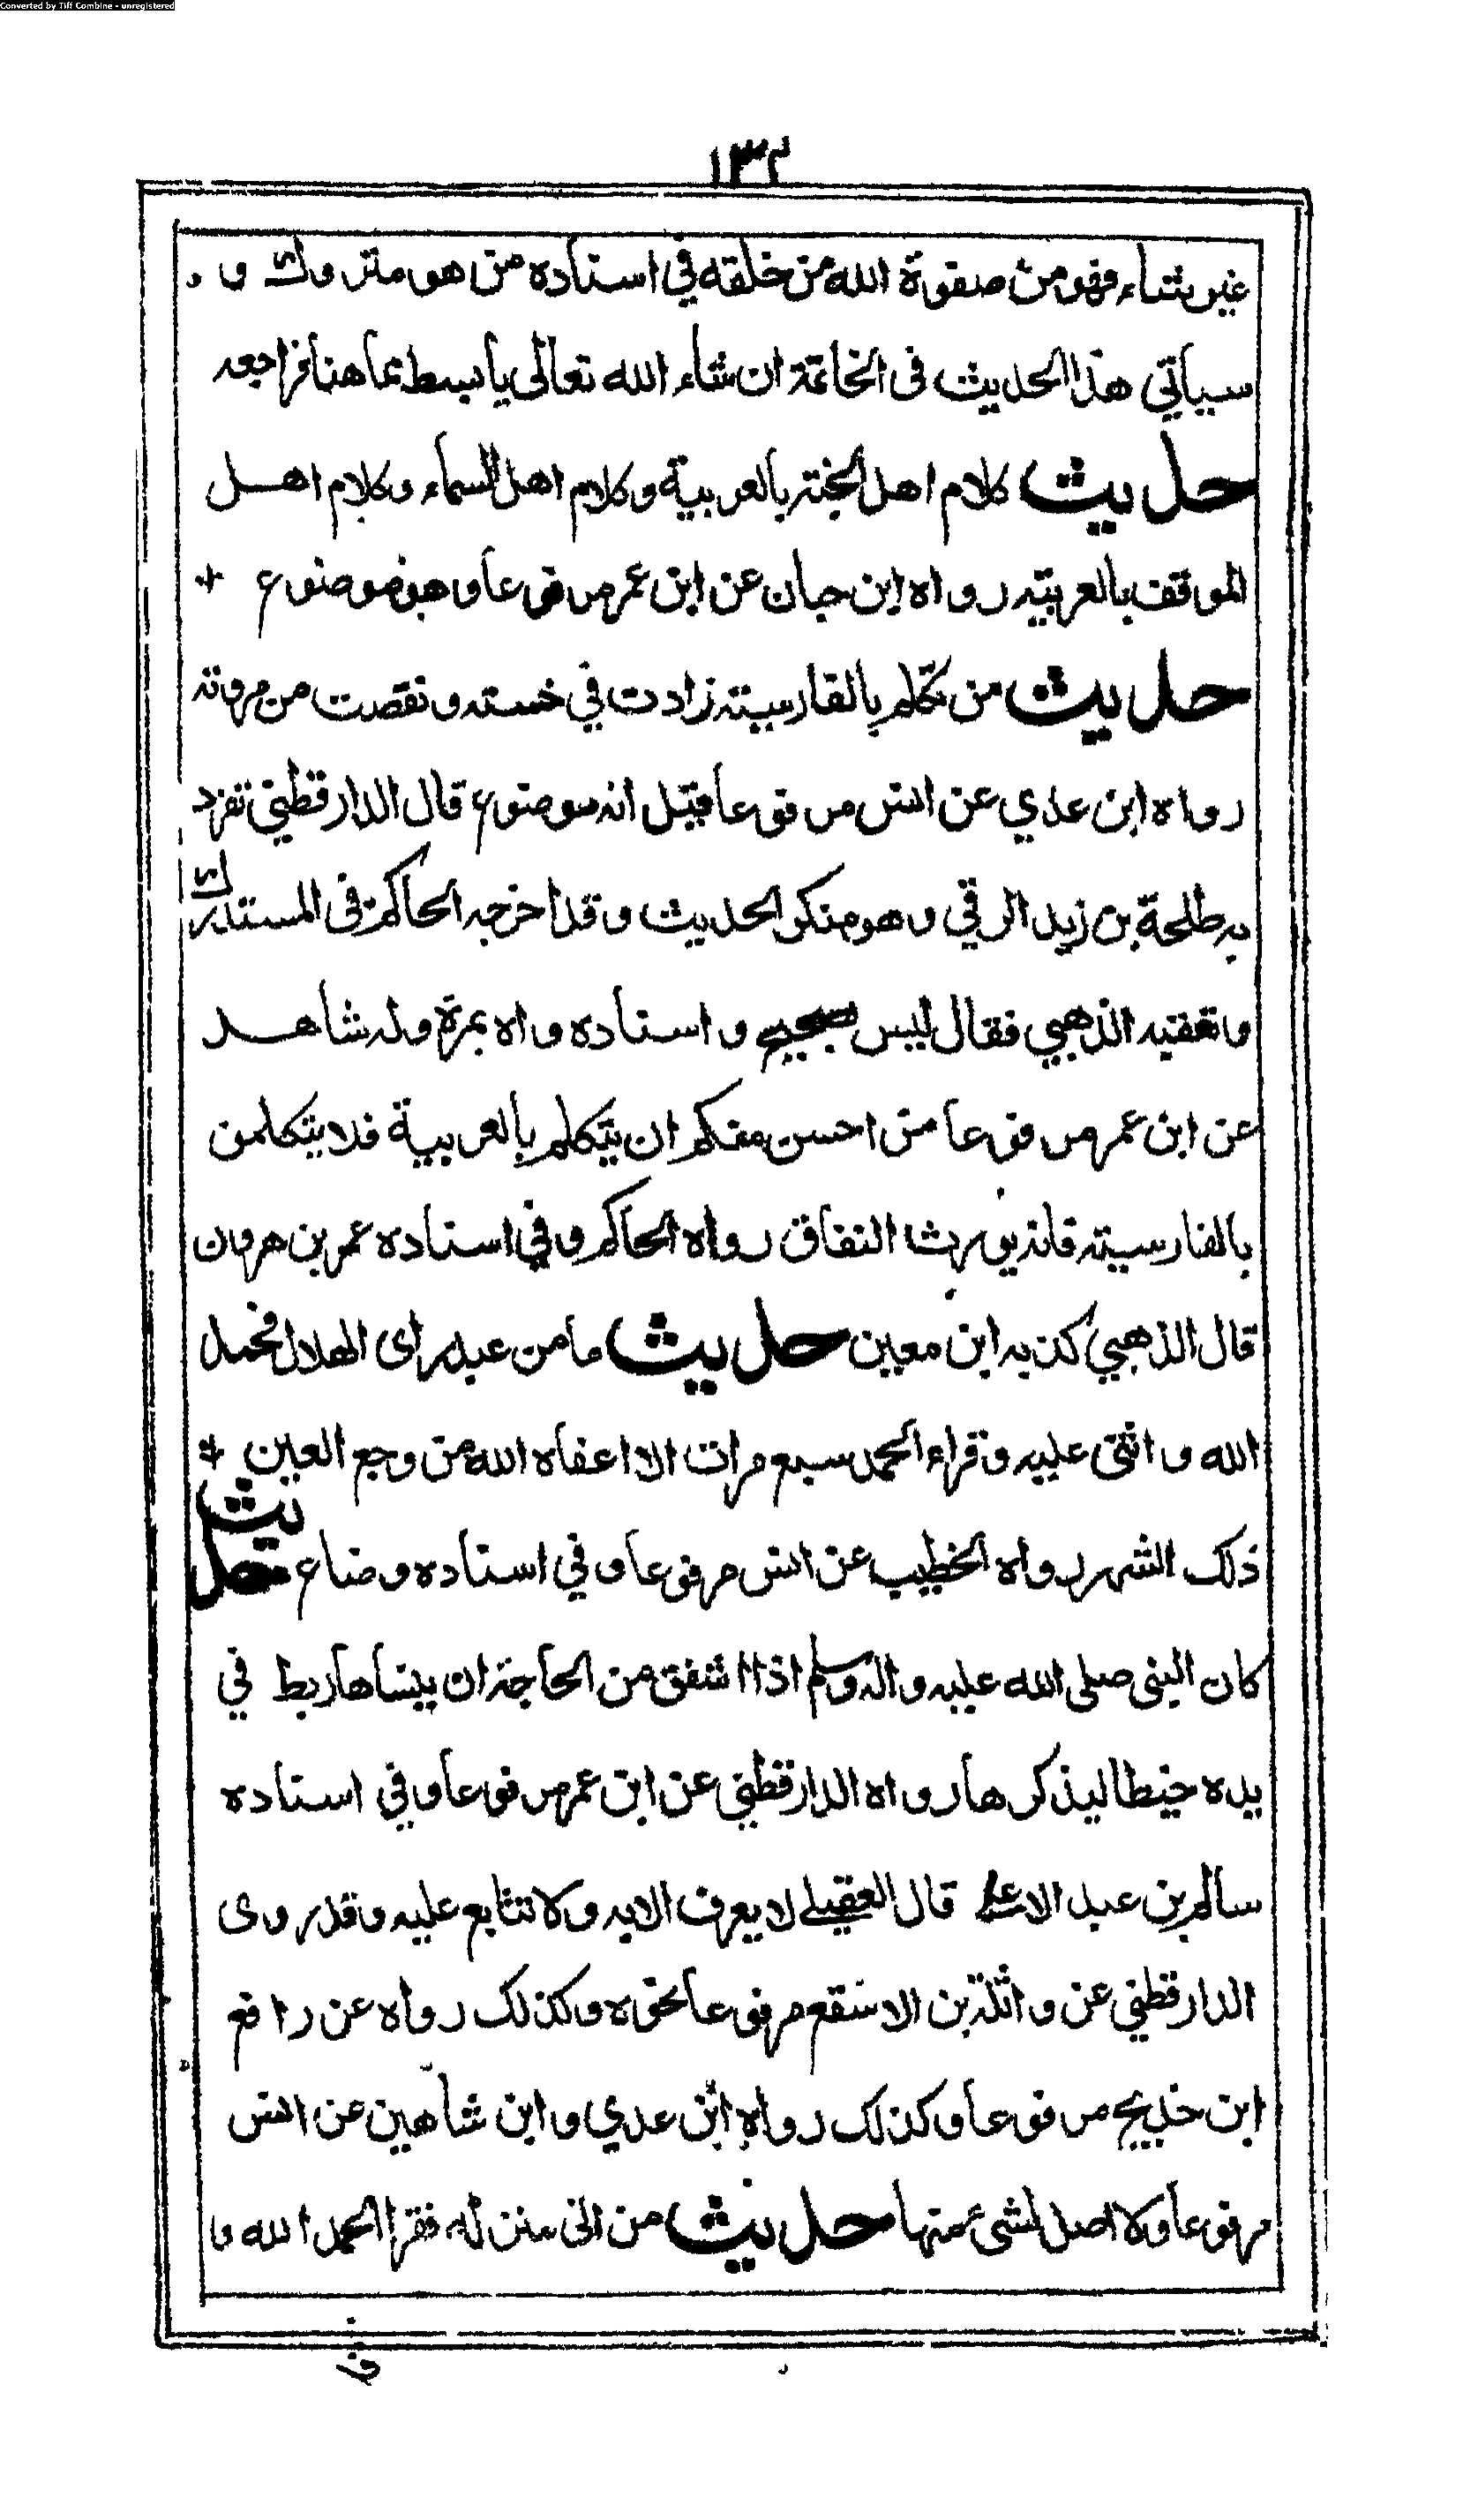 Converted by Tiff Combine - unregistered
١٣٢
غير شاء فهو من صفوة الله من خلقه في اسناده من هو متروك و
سيأتي هذا الحديث فى الخاتمة ان شاء الله تعالى يا بسط مما هنا فراجعه
حديث كلام اهل الجنة بالعربية وكلام اهل السماء وكلام اهل
الموقف بالعربية رواه ابن حبان عن ابن عمر مرفوعا وهو موضوع +
حديث من تكلم بالفارسية زادت في خسته ونقصت من مروته
رواه ابن عدي عن انس مرفوعا قيل انه موضوع قال الدارقطني تفرد
به طلحة بن زيد الرقي وهو منكر الحديث وقد اخرجه الحاكم فى المستدرك
وتعقبه الذهبي فقال ليس بصحيح و اسناده واه بمرة وله شاهد
عن ابن عمر مرفوعا من احسن منكم ان يتكلم بالعربية فلا يتكلمن
بالفارسية فانه يورث النفاق رواه الحاكم وفي اسناده عمر بن هرون
قال الذهبي كذبه ابن معين حديث ما من عبد راى الهلال فحمد
الله و اثنى عليه وقراء الحمد سبع مرات الا اعفاه الله من وجع العين +
ذلك الشهر رواه الخطيب عن انس مرفوعا وفي اسناده وضاع حديث
كان النبى صلى الله عليه واله وسلم اذا اشفق من الحاجة ان ينساها ربط في
يده خيطا ليذكرها رواه الدارقطني عن ابن عمر مرفوعا وفي اسناده
سالم بن عبد الاعلى قال العقيلي لا يعرف الا به ولا يتابع عليه وقد روى
الدارقطني عن واثلة بن الاسقع مرفوعا نحوه وكذلك رواه عن رافع
ابن خديج مرفوعا وكذلك رواه ابن عدي وابن شاهين عن انس
مرفوعا ولا اصل لشئ منها حديث من اتى منزله فقرا الحمد الله و